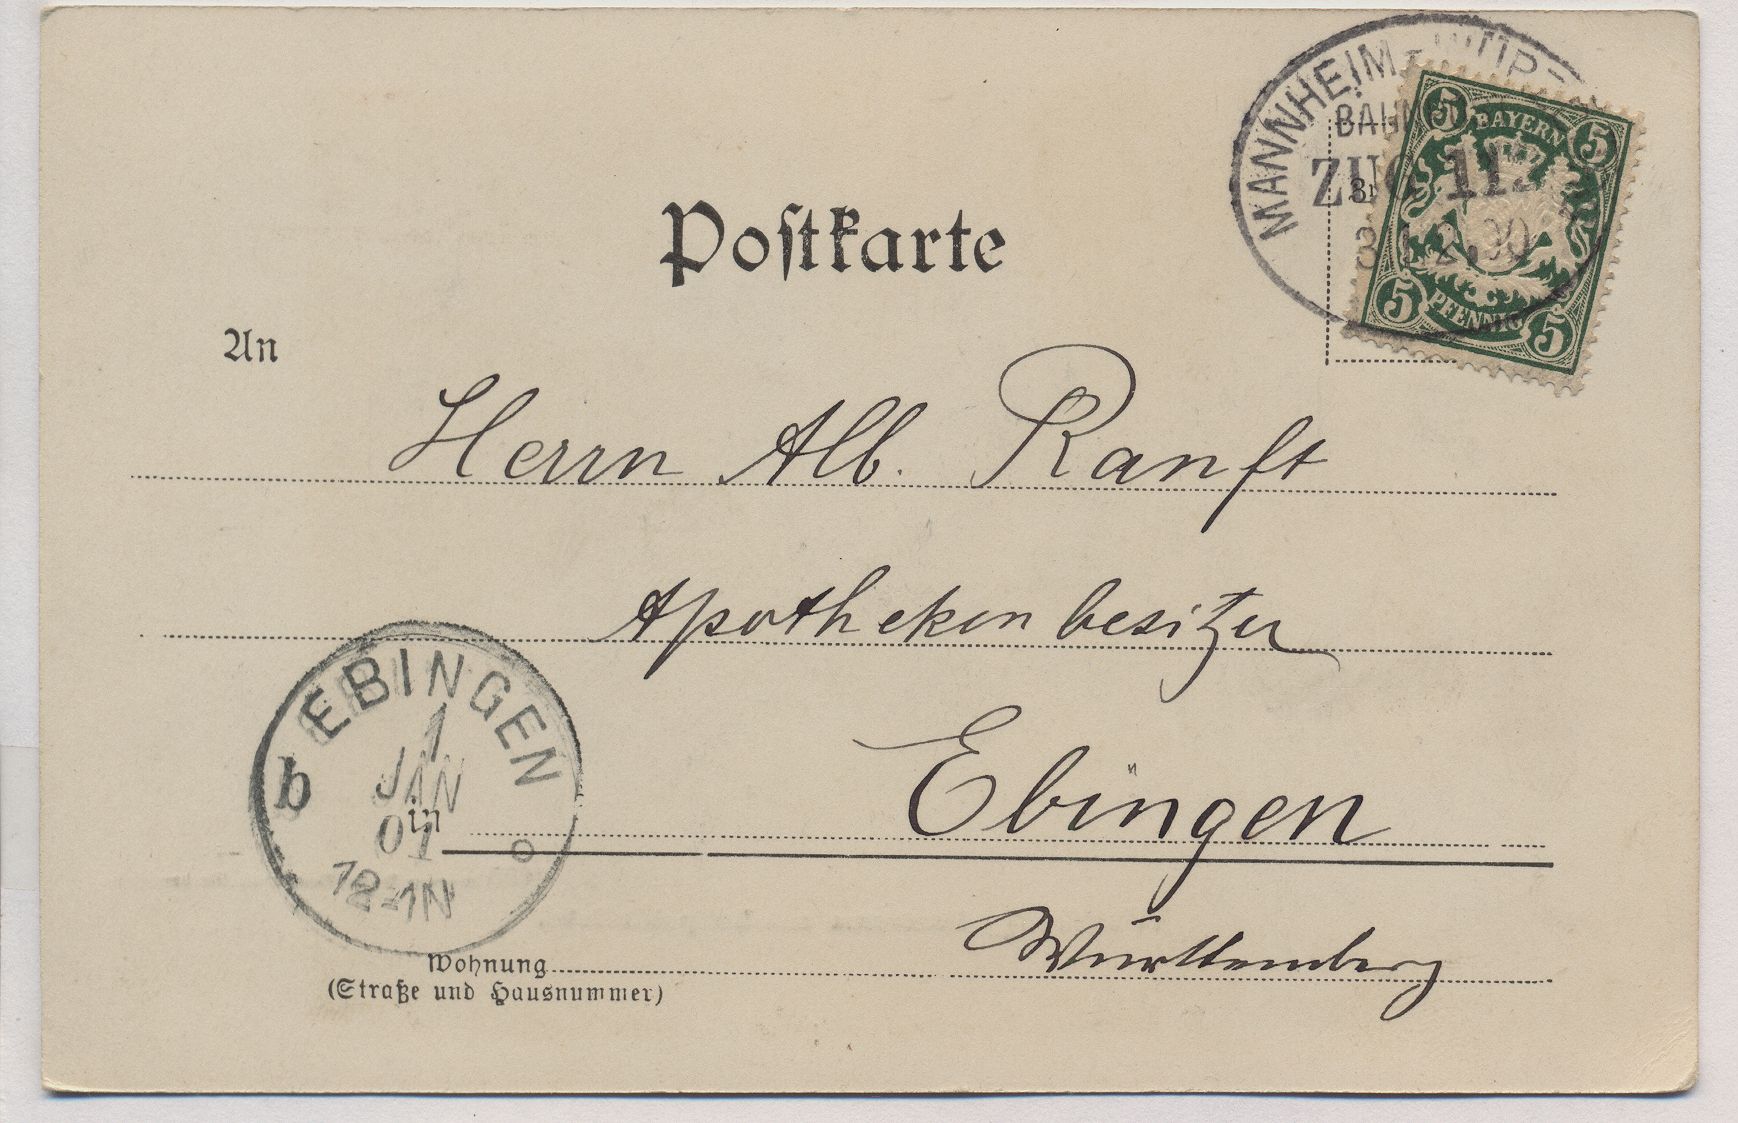 MANNHEIM - WÜRZ
BAHNPO
ZUG 11
5 BAYERN 5
5 PFENNIG 5
Postkarte
An
Herrn Alb. Ranft
Apothekenbesitzer
Ebingen
Württemberg
EBINGEN
1
JAN
01
12-1N
b
in
Wohnung
(Straße und Hausnummer)